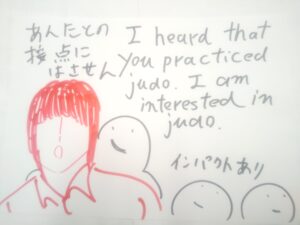 あんたとの
接点に
はさせん
I heard that
you practiced
judo. I am
interested in
judo.
インパクトあり